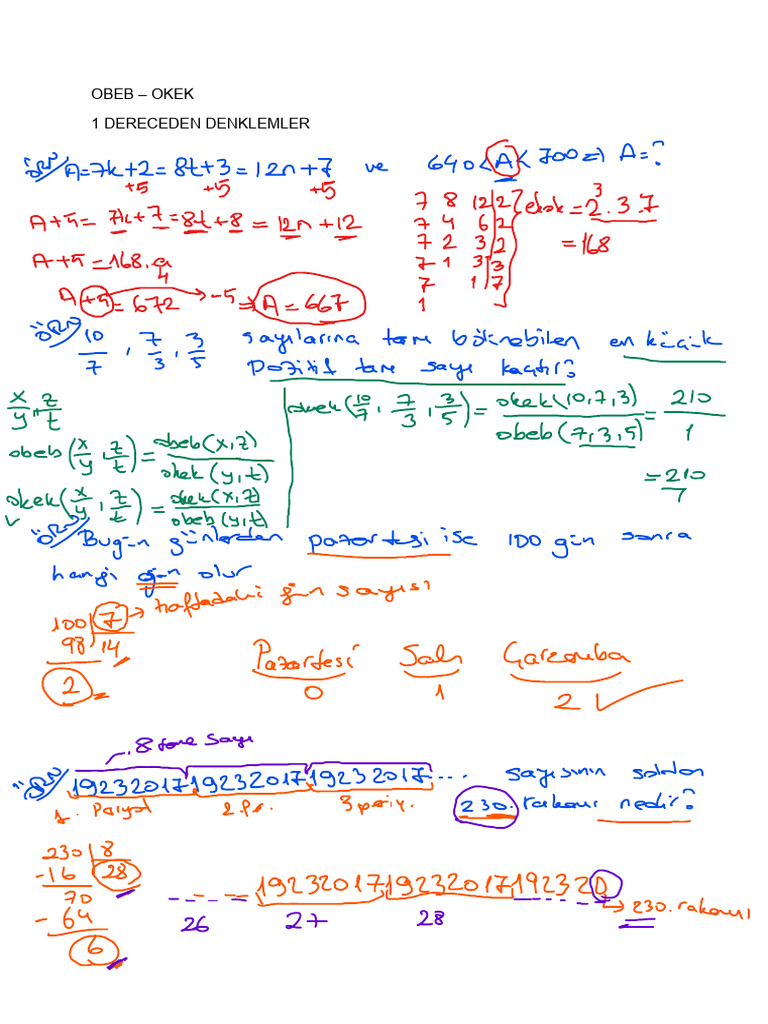 OBEB – OKEK
1 DERECEDEN DENKLEMLER
ÖRN/ A=7k+2=8t+3=12n+7 ve 640<A<700⇒ A=?
+5 +5 +5
A+5=7k+7=8t+8=12n+12
A+5=168.a
4
A+5=672 → -5 ⇒ A=667
7 8 12 | 2
7 4 6 | 2
7 2 3 | 2
7 1 3 | 3
7 1 | 7
1
ekok = 2³.3.7
=168
ÖRN/ 10/7, 7/3, 3/5 sayılarına tam bölünebilen en küçük
pozitif tam sayı kaçtır?
x/y, z/t
obeb(x/y, z/t) = obeb(x,z)/okek(y,t)
okek(x/y, z/t) = okek(x,z)/obeb(y,t)
okek(10/7, 7/3, 3/5) = okek(10,7,3)/obeb(7,3,5) = 210/1
=210/7
ÖRN/ Bugün günlerden pazartesi ise 100 gün sonra
hangi gün olur
100 | 7 → haftadaki gün sayısı
98 | 14
2
Pazartesi Salı Çarşamba
0 1 2 ✓
8 tane sayı
ÖRN/ 19232017 19232017 19232017... sayısının soldan
1. Periyot 2.Pe. 3 periy. 230. rakamı nedir?
230 | 8
-16 | 28
70
- 64
6
19232017 19232017 192320
26 27 28 → 230. rakamı